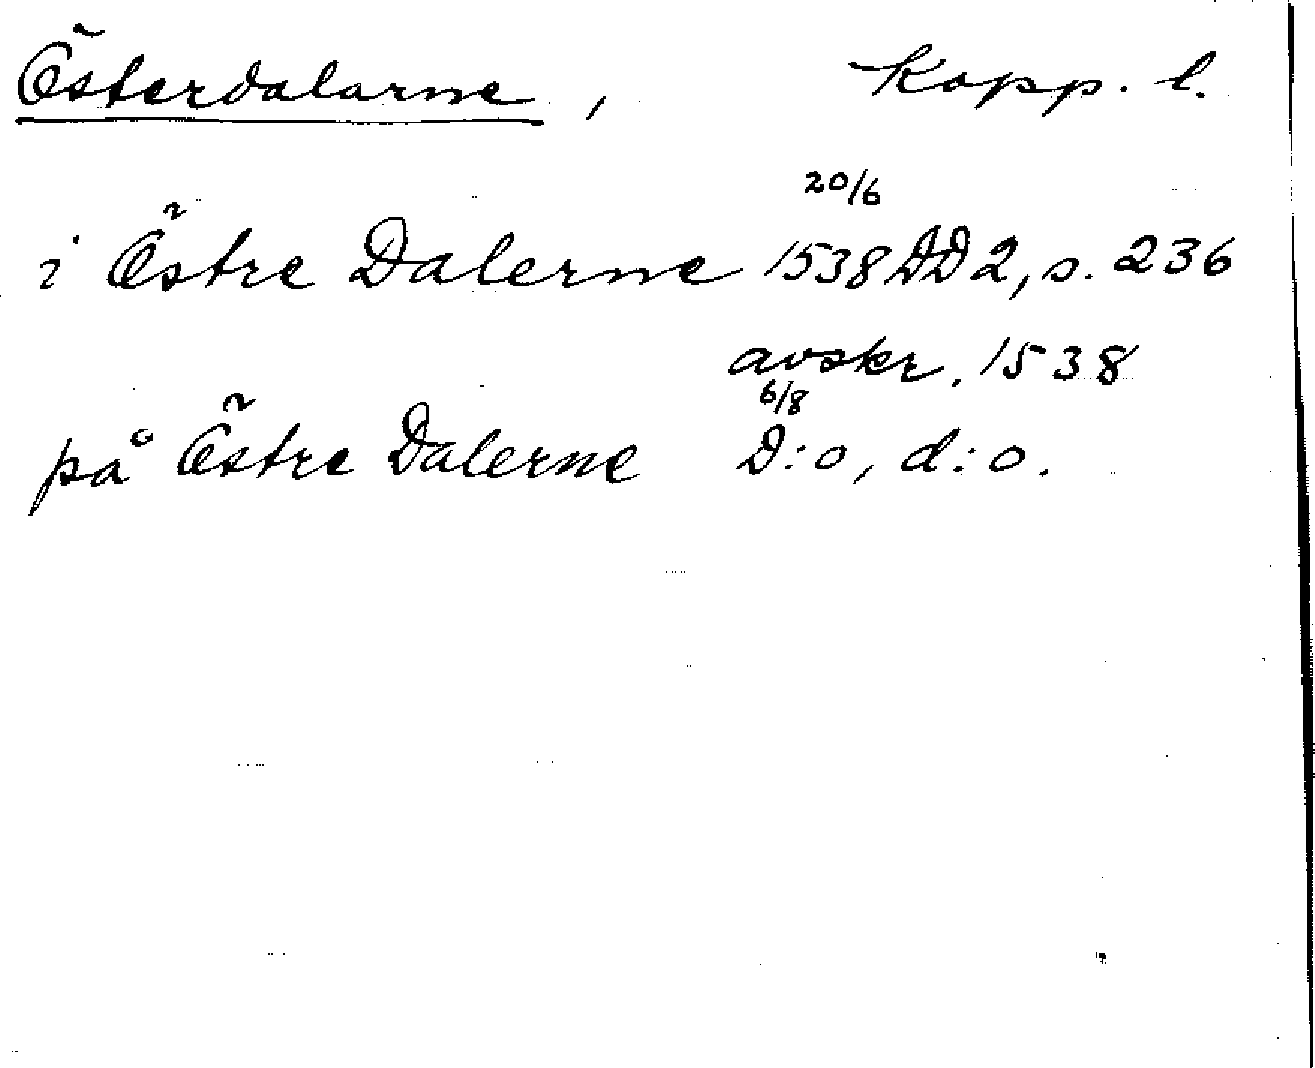 Österdalarne, Kopp. l.
20/6
i Östre Dalerne 1538 DD 2, s. 236
avskr. 1538
6/8
på Östre Dalerne D:o, d:o.